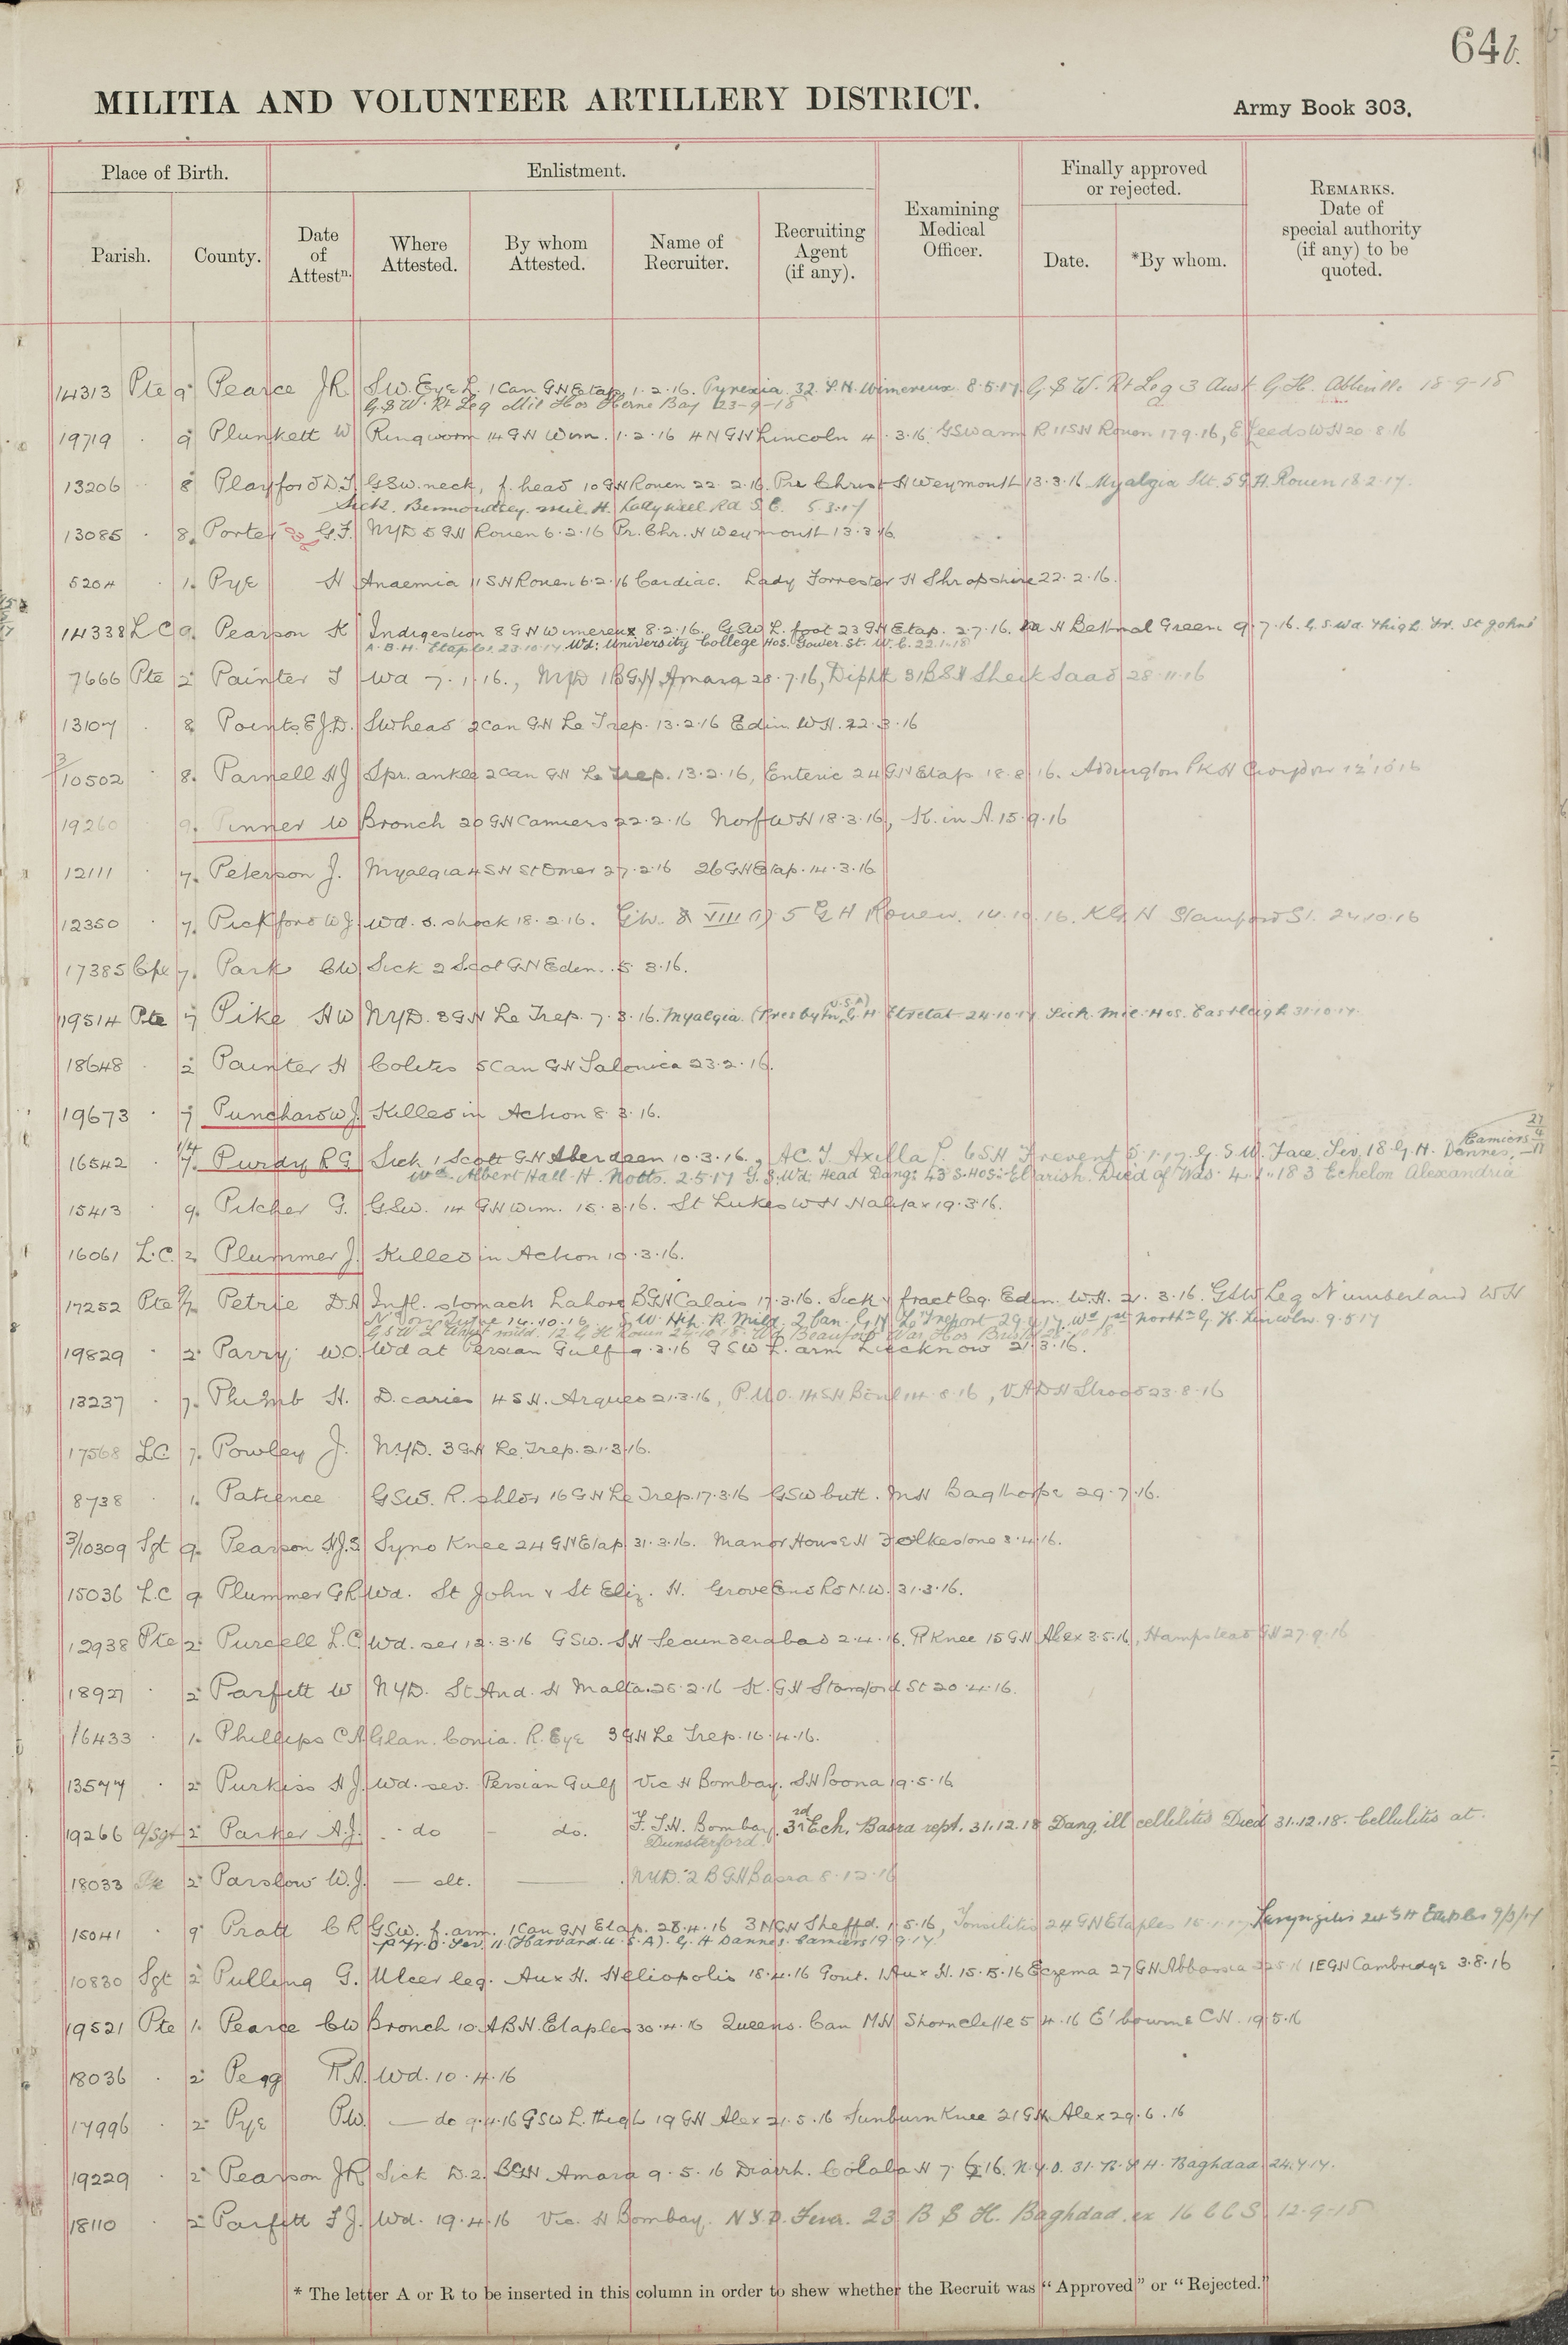 64b.
MILITIA AND VOLUNTEER ARTILLERY DISTRICT.
Army Book 303.
Place of Birth.
Enlistment.
Finally approved or rejected.
Parish.
County.
Date of Attestn.
Where Attested.
By whom Attested.
Name of Recruiter.
Recruiting Agent (if any).
Examining Medical Officer.
Date.
*By whom.
REMARKS. Date of special authority (if any) to be quoted.
14313 Pte 9 Pearce JR SW. Eye L. 1 Can GH Etap. 1.2.16. Pyrexia. 32 S.H. Wimereux 8.5.17 G.S.W. Rt Leg 3 Aust G.H. Abbeville 18-9-18
G.S.W. Rt Leg Mil Hos Herne Bay 23-9-18
19719 · 9 Plunkett W Ringworm 14 GH Wim. 1.2.16 4 N GH Lincoln 4.3.16. GSW arm R 11 SH Rouen 17.9.16, E Leeds WH 20.8.16
13206 · 8 Playford D.J. GSW. neck, f. head 10 GH Rouen 22.2.16. Pre Christ H Weymouth 13.3.16 Myalgia Slt. 5 G.H. Rouen 18.2.17.
Sick. Bermondsey. Mil. H. Ladywell Rd S.E. 5.3.17
13085 · 8. Porter G.F. NYD 5 GH Rouen 6.2.16 Pr. Chr. H Weymouth 13.3.16
5204 · 1. Pye H Anaemia 11 SH Rouen 6.2.16 Cardiac. Lady Forrester H Shropshire 22.2.16.
14338 L C 9. Pearson K Indigestion 8 GH Wimereux 8.2.16. GSW L. foot 23 GH Etap. 2.7.16. H Bethnal Green 9.7.16. G.S.Wd. Thigh. Fr. St Johns
A.B.H. Etaples. 23.10.17. Wd: University College Hos. Gower. St. W.C. 22.1.18
7666 Pte 2 Painter J Wd 7.1.16., NYD 1 B GH Amara 28.7.16, Dipht 31 BSH Sheik Saad 28.11.16
13107 · 8 Points E.J.D. SW head 2 Can GH Le Trep. 13.2.16 Edin WH. 22.3.16
3/10502 · 8. Parnell HJ Spr. ankle 2 Can GH Le Trep. 13.2.16, Enteric 24 GH Etap 18.8.16. Addington PK H Croydon 12.10.16
19260 9. Pinner W Bronch 20 GH Camiers 22.2.16 Norf WH 18.3.16, K. in A. 15.9.16
12111 · 7. Peterson J. Myalgia 4 SH St Omer 27.2.16 26 GH Etap. 14.3.16
12350 · 7. Pickford WJ Wd. S. shock 18.2.16. 5 G H Rouen. 14.10.16. KG H Stamford St. 24.10.16
17385 Cpl 7. Park CW Sick 2 Scot GH Eden. 5.3.16.
19514 Pte 7 Pike HW NYD. 3 GH Le Trep. 7.3.16. Myalgia. (Presbytn U.S.A) G.H. Etretat 24.10.17 Sick. Mil. Hos. Eastleigh 31.10.17.
18648 · 2 Painter H Colitis 5 Can GH Salonica 23.2.16.
19673 · 7 Punchard WJ. Killed in Action 8.3.16.
16542 · Purdy RG Sick 1 Scott GH Aberdeen 10.3.16., AC. T Axilla L. 6 SH Frevent 5.1.17. G.S.W. Face. Sev, 18 G.H. Dannes, Camiers
Wd. Albert Hall H. Notts. 2.5.17 G.S.Wd. Head Dang: 43 S. Hos: El Arish. Died of Wds. 3 Echelon Alexandria
15413 · 9. Pitcher G. GSW. 14 GH Wim. 15.3.16. St Lukes WH Halifax 19.3.16.
16061 L.C. 2 Plummer J. Killed in Action 19.3.16.
17252 Pte Petrie DA Infl. stomach Lahore BGH Calais 17.3.16. Sick & fract leg. Edin. W.H. 21.3.16. GSW Leg N'umberland WH
14.10.16. G.W. Hip. R. Mild. 2 Can. G.H. Le Treport 29.4.17. Wd 1st North'n G.H. Lincoln. 9.5.17
12 G H Rouen 24.10.18. Wd Beaufort War Hos Bristol
19829 · 2 Parry W.O. Wd at Persian Gulf 9.3.16 GSW L. arm Lucknow 21.3.16.
13237 · 7. Plumb H. D. caries 4 S.H. Arques 21.3.16, P.U.O. 14 SH Boul 14.8.16, VADH Strood 23.8.16
17568 LC 7. Powley J. NYD. 3 GH Le Trep. 21.3.16.
8738 · 1. Patience GSW. R. shldr 16 GH Le Trep. 17.3.16 GSW butt. MH Bagthorpe 29.7.16.
3/10309 Sgt 9. Pearson H.J.S Syno Knee 24 GH Etap 31.3.16. Manor House H Folkestone 8.4.16.
15036 L.C 9 Plummer GR Wd. St John & St Eliz. H. Grove End Rd N.W. 31.3.16.
12938 Pte 2 Purcell L.C. Wd. sev 12.3.16 GSW. SH Secunderabad 2.4.16. R Knee 15 GH Alex 3.5.16, Hampstead GH 27.9.16
18927 · 2 Parfitt W NYD. St And. H Malta. 25.2.16 K. GH Stamford St 20.4.16.
16433 · 1. Phillips CA Glan. Conja. R. Eye 3 GH Le Trep. 10.4.16.
13577 · 2 Purkiss H J. Wd. sev. Persian Gulf Vic H Bombay. SH Poona 19.5.16
19266 A/Sgt 2 Parker A.J. · do – do. F.T.H. Bombay. 3rd Ech. Basra rept. 31.12.18 Dang. ill cellulitis Died 31.12.18. Cellulitis at
Dunsterford
18033 Pte 2 Parslow W.J. — slt. — NYD. 2 B GH Basra 8.12.16
15041 · 9 Pratt C R GSW. f. arm. 1 Can GH Etap. 28.4.16 3 N GH Sheffd. 1.5.16, Tonsilitis 24 GH Etaples Laryngitis 24 GH Etaples 9/3/17
Sev. 11. (Harvard. U.S.A). G.H Dannes. Camiers 19.9.17.
10830 Sgt 2 Pulling G. Ulcer leg. Aux H. Heliopolis 18.4.16 Gout. 1 Aux H. 15.5.16 Eczema 27 GH Abbassia 1 EGH Cambridge 3.8.16
19521 Pte 1. Pearce CW Bronch 10. ABH. Etaples 30.4.16 Queens. Can MH Shorncliffe 5.4.16 E'bourne CH. 19.5.16
18036 · 2 Pegg R.A. Wd. 10.4.16
17996 · 2 Pye P.W. — do 9.4.16 GSW L. thigh 19 GH Alex 21.5.16 Sunburn Knee 21 GH. Alex 29.6.16
19229 · 2 Pearson JR Sick D. 2. BGH Amara 9.5.16 Diarrh. Colaba H 7.6.16. N.Y.D. 31. B.S.H. Baghdad. 24.7.17.
18110 · 2 Parfitt F J. Wd. 19.4.16 Vic. H Bombay. N.Y.D. Fever. 23 B S H. Baghdad. ex 16 C C S 12-9-18
* The letter A or R to be inserted in this column in order to shew whether the Recruit was "Approved" or "Rejected."